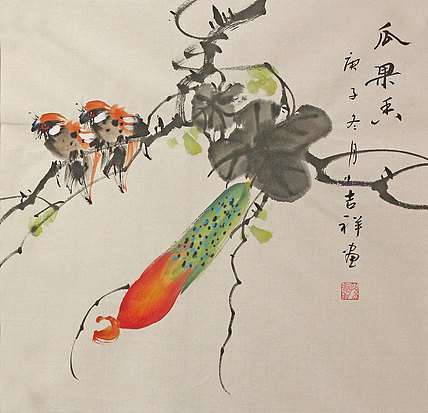 瓜果香
庚子冬月小吉祥画